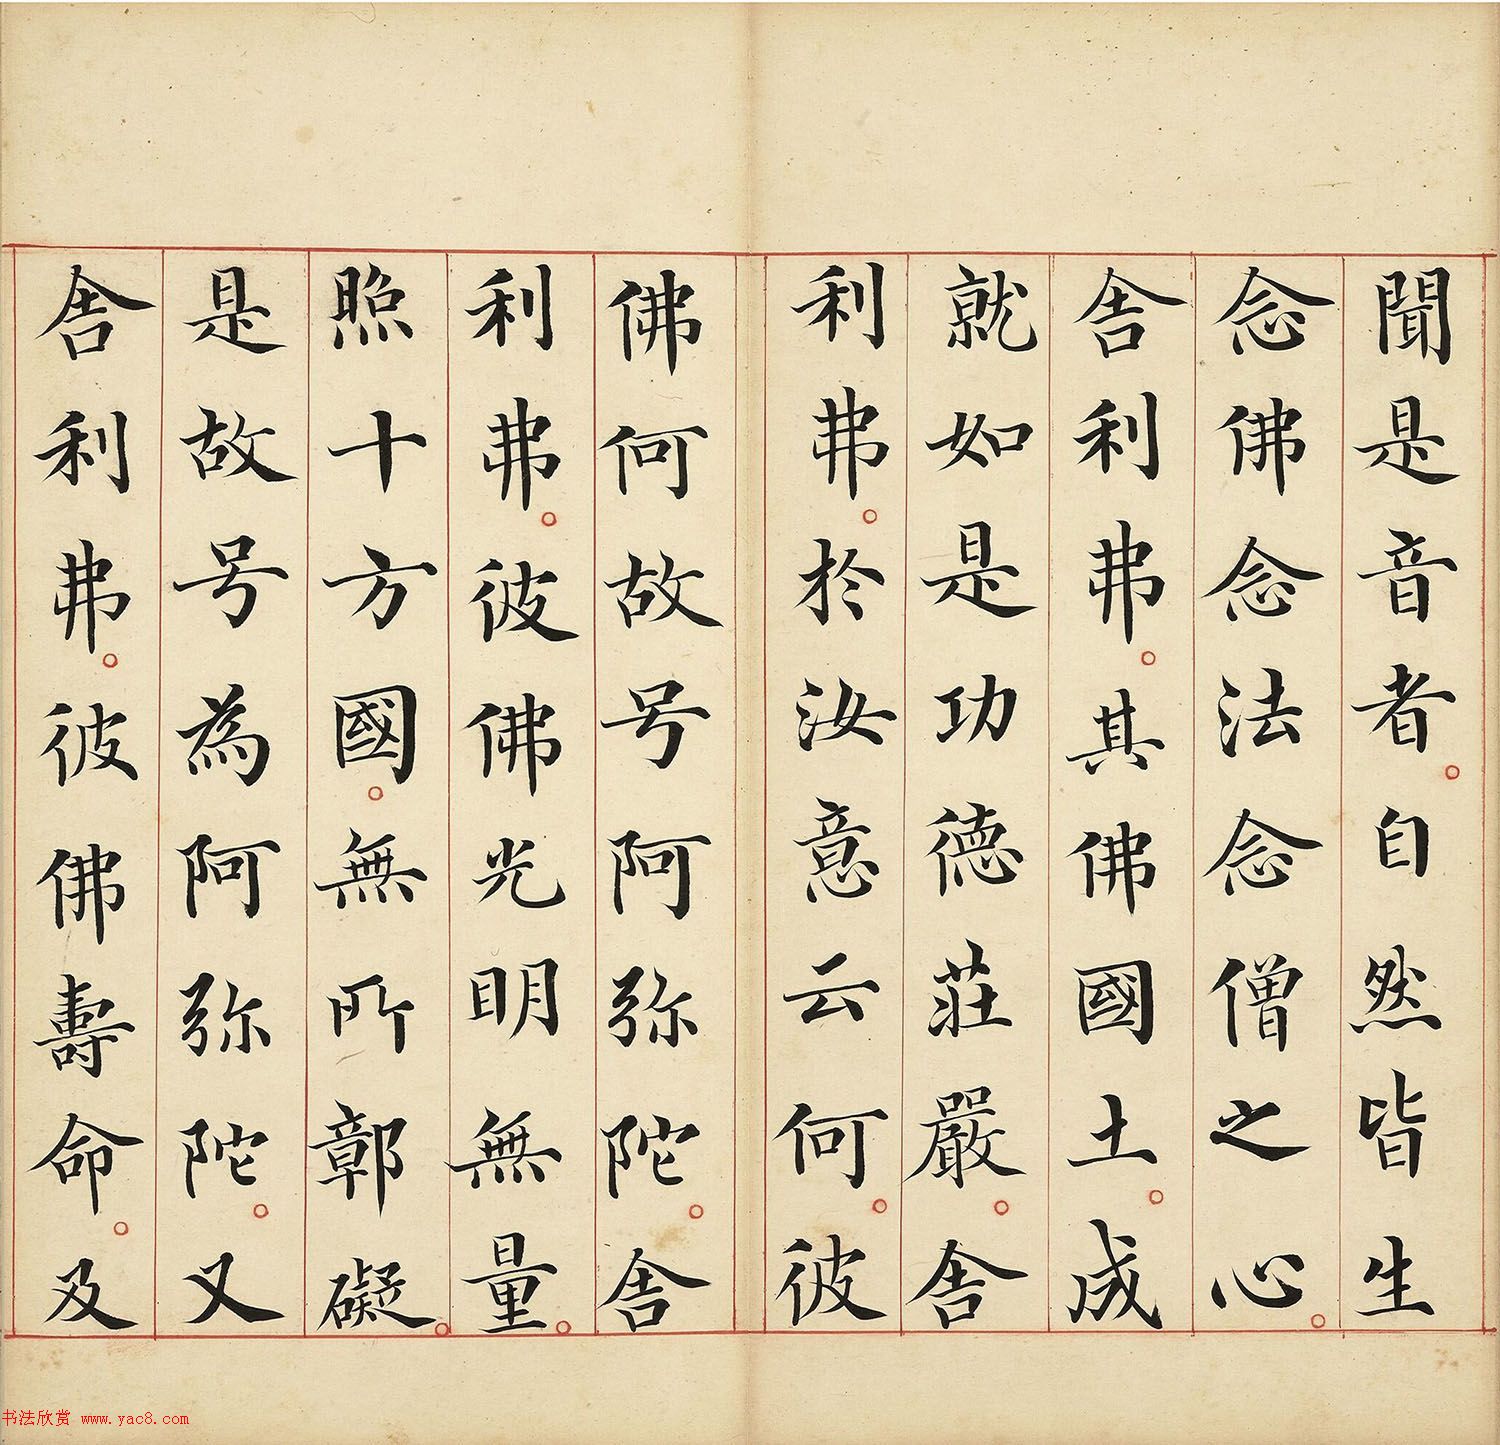 聞是音者。自然皆生
念佛念法念僧之心。
舎利弗。其佛國土。成
就如是功德莊嚴。舎
利弗。於汝意云何。彼
佛何故号阿弥陀。舎
利弗。彼佛光明無量。
照十方國。無所鄣礙。
是故号為阿弥陀。又
舎利弗。彼佛壽命。及
书法欣赏 www.yac8.com